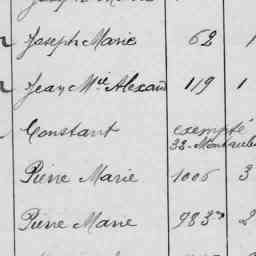 Joseph Marie 62 1
Jean Mie Alexand 119 1
Constant exempté
32-
Pierre Marie 1006 3
Pierre Marie 983 2